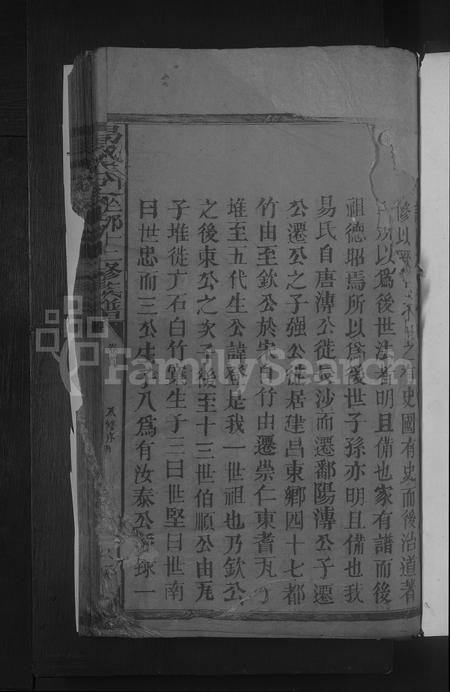 之有史國有史而後治道著
以爲後世法者明且備也家有譜而後
祖德昭焉所以爲後世子孫亦明且備也我
易氏自唐溥公徙長沙而遷鄱陽溥公子遷
公遷公之子强公徙居建昌東鄉四十七都
竹由至欽公於宋自竹由遷崇仁東耆瓦子
堆至五代生公諱登是我一世祖也乃欽公
之後東公之次子後至十三世伯順公由瓦
子堆徙方石白竹寔生子三曰世堅曰世南
曰世忠而三公生子八爲有汝泰公
一
族譜
FamilySearch